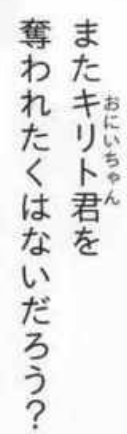 またキリト君を
おにいちゃん
奪われたくはないだろう？